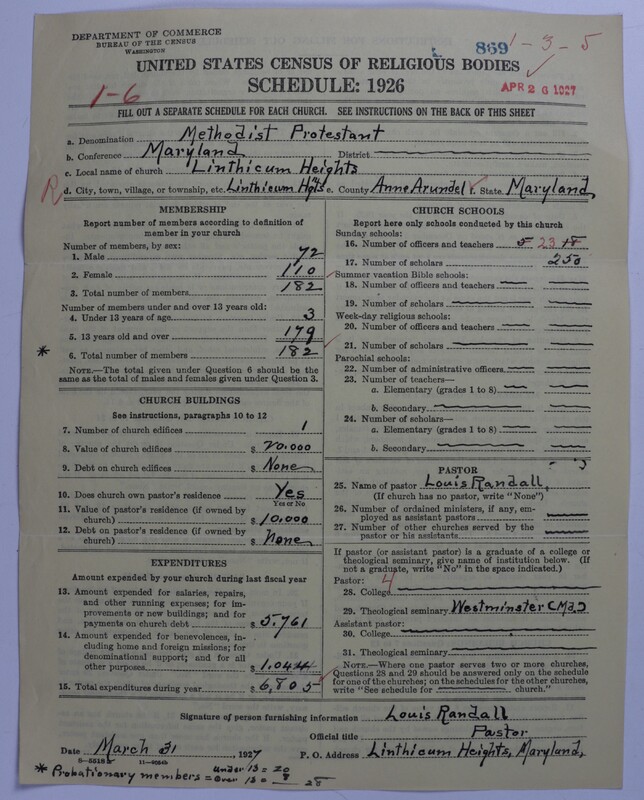 DEPARTMENT OF COMMERCE
BUREAU OF THE CENSUS
WASHINGTON
869 1-3-5
UNITED STATES CENSUS OF RELIGIOUS BODIES
SCHEDULE: 1926
APR 26 1927
1-6
FILL OUT A SEPARATE SCHEDULE FOR EACH CHURCH. SEE INSTRUCTIONS ON THE BACK OF THIS SHEET
a. Denomination Methodist Protestant
b. Conference Maryland District
c. Local name of church Linthicum Heights
R d. City, town, village, or township, etc. Linthicum Hgts e. County Anne Arundel f. State Maryland
MEMBERSHIP
Report number of members according to definition of
member in your church
Number of members, by sex:
1. Male 72
2. Female 110
3. Total number of members 182
Number of members under and over 13 years old:
4. Under 13 years of age 3
5. 13 years old and over 179
* 6. Total number of members 182
NOTE.—The total given under Question 6 should be
same as the total of males and females given under Question 3.
CHURCH BUILDINGS
See instructions, paragraphs 10 to 12
7. Number of church edifices 1
8. Value of church edifices $ 20.000
9. Debt on church edifices $ None
10. Does church own pastor's residence Yes
Yes or No
11. Value of pastor's residence (if owned by
church) $ 10,000
12. Debt on pastor's residence (if owned by
church) $ None
EXPENDITURES
Amount expended by your church during last fiscal year
13. Amount expended for salaries, repairs,
and other running expenses; for im-
provements or new buildings; and for
payments on church debt $ 5.761
14. Amount expended for benevolences, in-
cluding home and foreign missions; for
denominational support; and for all
other purposes 1.044
15. Total expenditures during year $ 6,805
CHURCH SCHOOLS
Report here only schools conducted by this church
Sunday schools:
16. Number of officers and teachers 5 23 18
17. Number of scholars 250
Summer vacation Bible schools:
18. Number of officers and teachers
19. Number of scholars
Week-day religious schools:
20. Number of officers and teachers
21. Number of scholars
Parochial schools:
22. Number of administrative officers
23. Number of teachers—
a. Elementary (grades 1 to 8)
b. Secondary
24. Number of scholars—
a. Elementary (grades 1 to 8)
b. Secondary
PASTOR
25. Name of pastor Louis Randall,
(If church has no pastor, write "None")
26. Number of ordained ministers, if any, em-
ployed as assistant pastors
27. Number of other churches served by the
pastor or his assistants
If pastor (or assistant pastor) is a graduate of a college or
theological seminary, give name of institution below. (If
not a graduate, write "No" in the space indicated.)
Pastor: 4
28. College
29. Theological seminary Westminster (Md.)
Assistant pastor:
30. College
31. Theological seminary
NOTE.—Where one pastor serves two or more churches,
Questions 28 and 29 should be answered only on the schedule
for one of the churches; on the schedules for the other churches,
write "See schedule for church."
Signature of person furnishing information Louis Randall
Official title Pastor
Date March 31, 1927 P. O. Address Linthicum Heights, Maryland,
* Probationary members = under 13 = 20
over 13 = 8 28